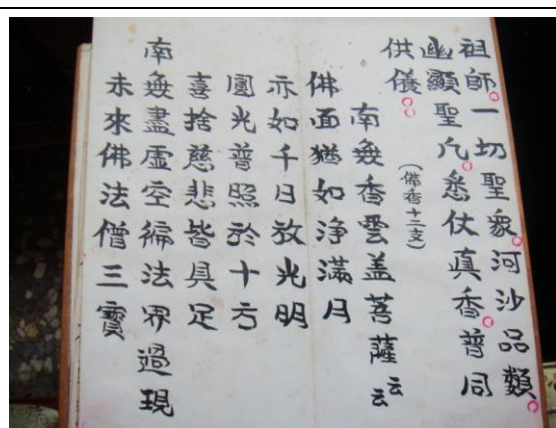 祖師一切聖衆河沙品類
幽顯聖凢悉仗真香普同
供儀（備香十二支）
南無香雲盖菩薩云云
佛面猶如淨滿月
亦如千日放光明
圓光普照於十方
喜捨慈悲皆具足
南無盡虛空徧法界過現
未來佛法僧三寶